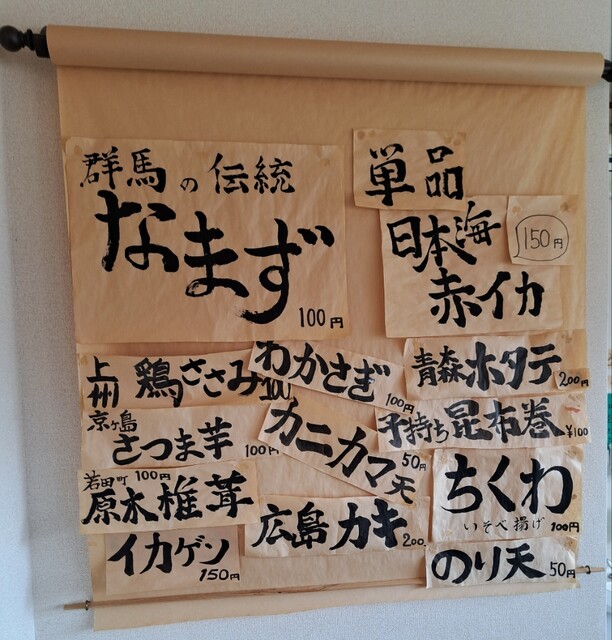 群馬の伝統
なまず
100円
単品
日本海
赤イカ
150円
上州
鶏ささみ100
わかさぎ
100円
青森ホタテ
200円
京ヶ島
さつま芋
100円
カニカマ天
50円
子持ち昆布巻
¥100
若田町 100円
原木椎茸
広島カキ
200
ちくわ
いそべ揚げ 100円
イカゲソ
150円
のり天 50円